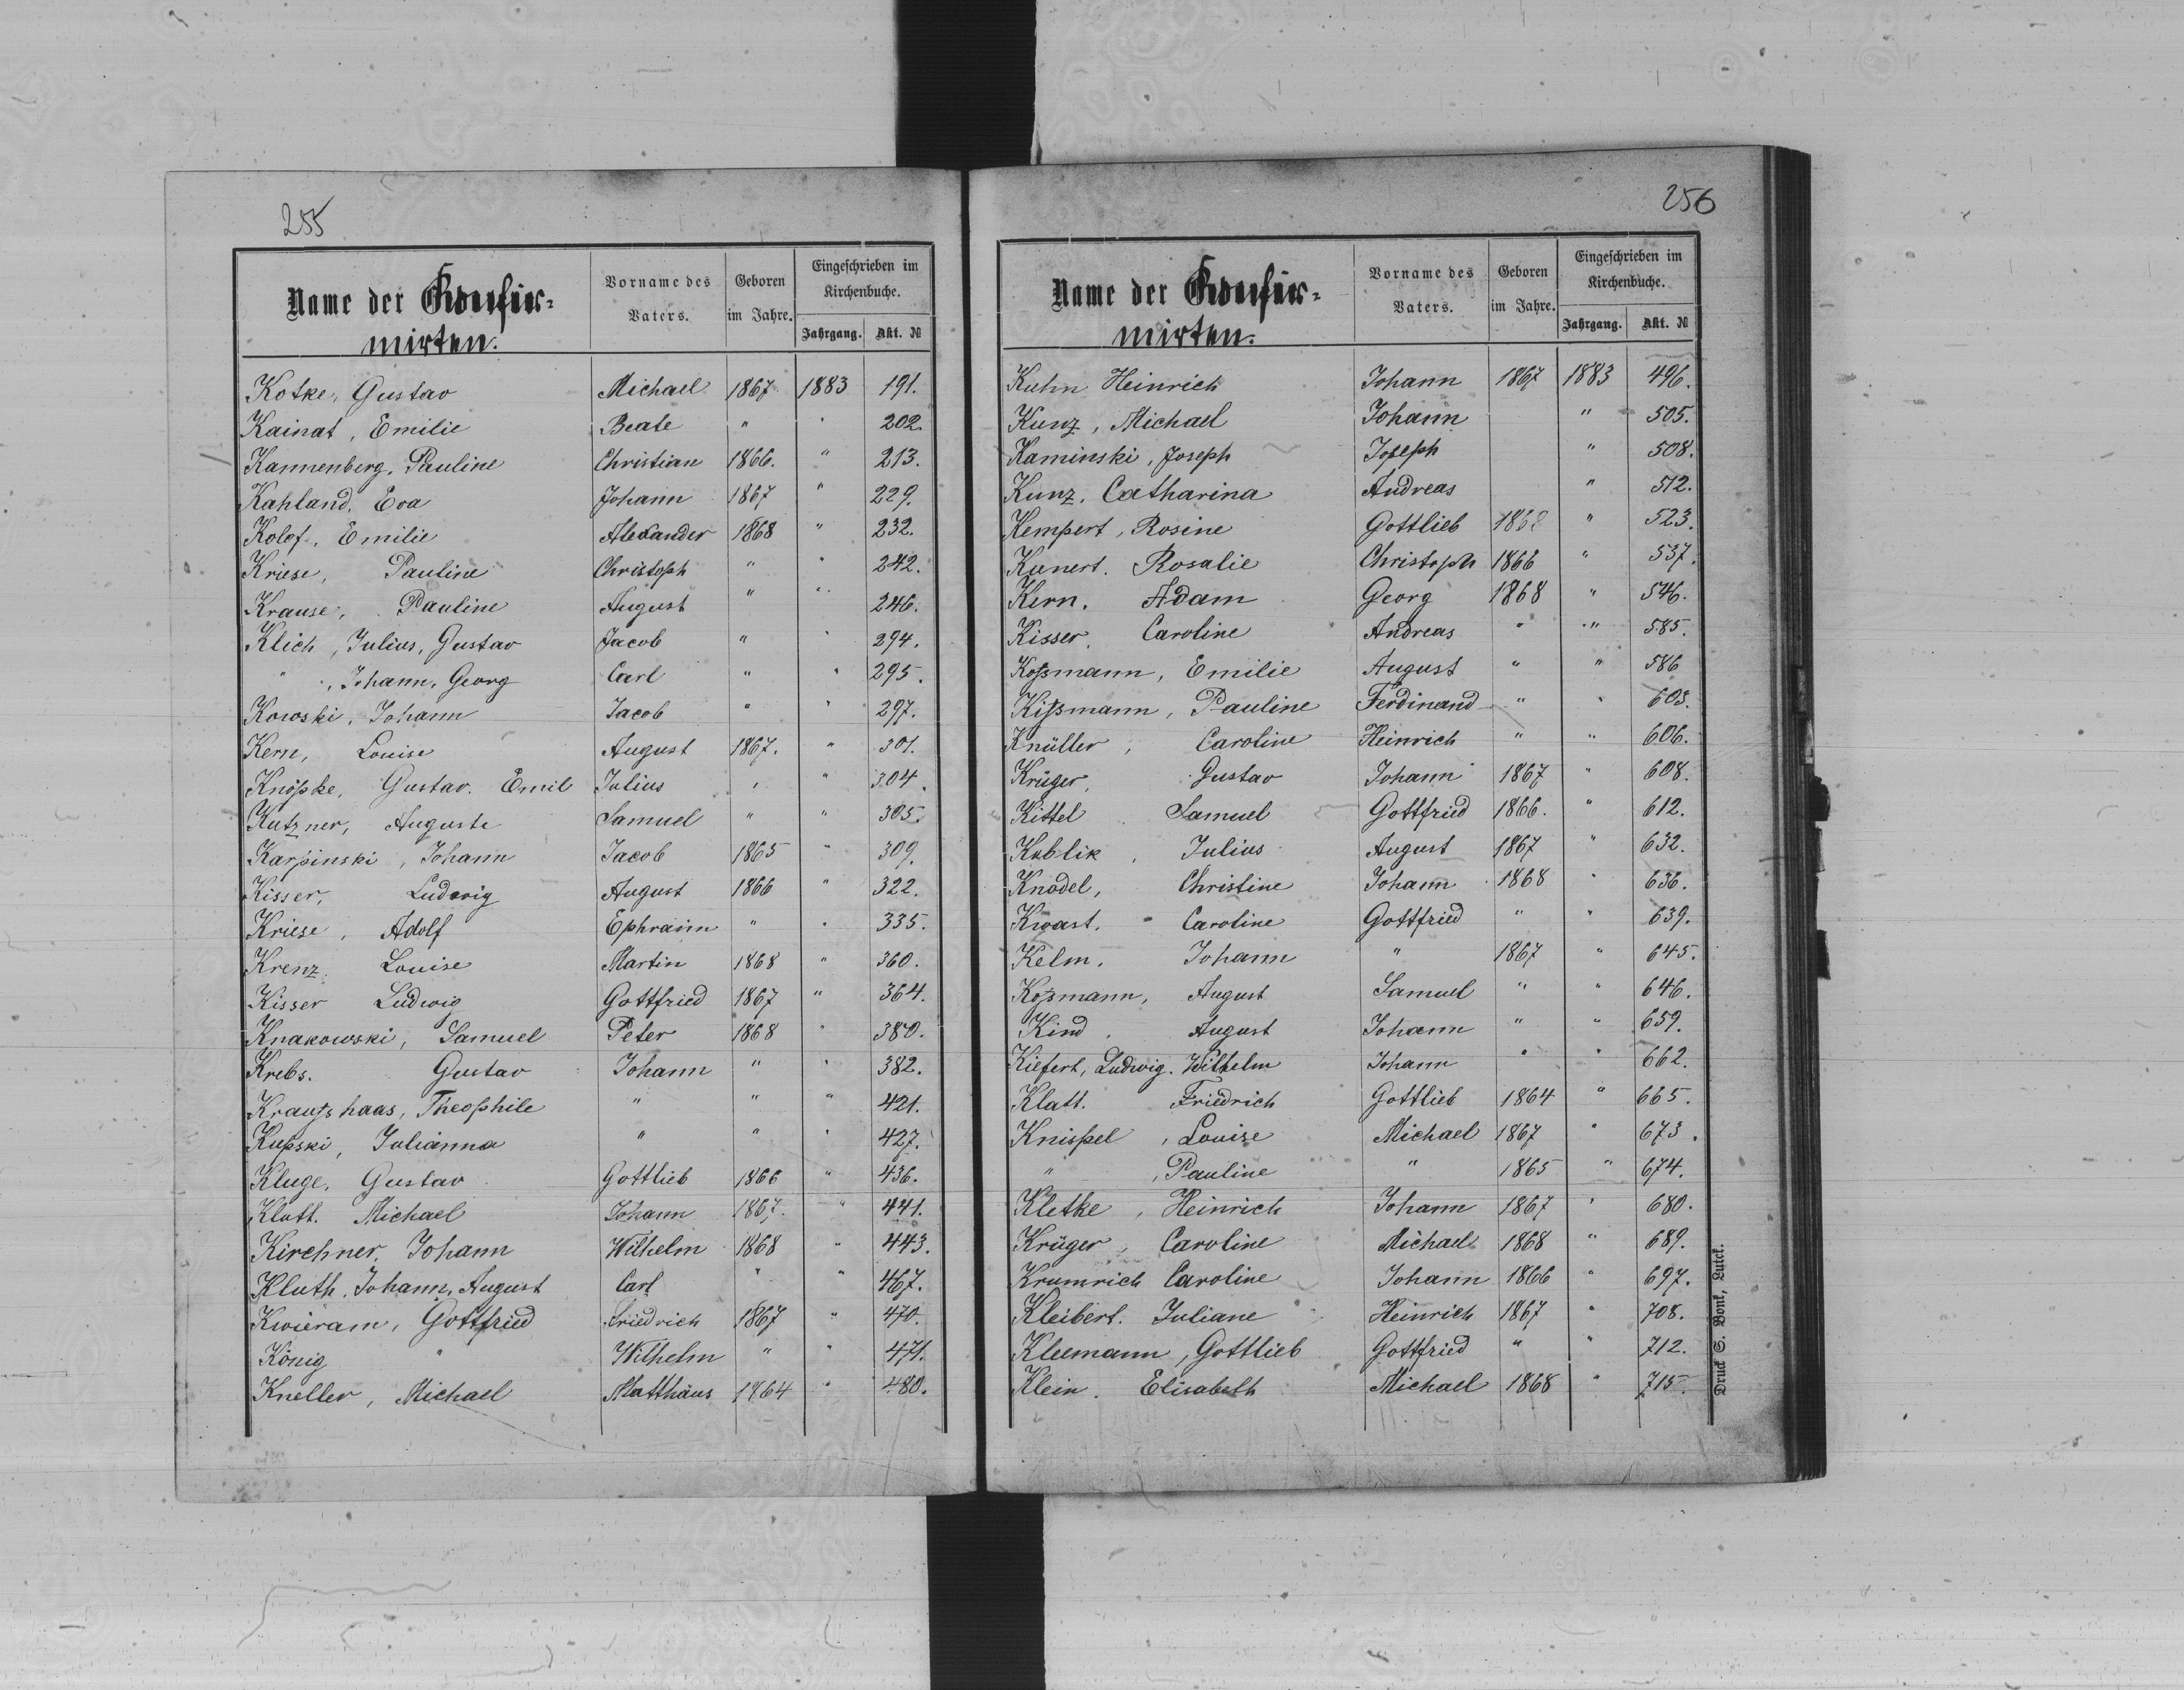 255
Name der Konfir-
mirten.
Vorname des
Vaters.
Geboren
im Jahre.
Eingeschrieben im
Kirchenbuche.
Jahrgang. Akt. №
Kotke, Gustav Michael 1867 1883 191.
Kainat, Emilie Beate " " 202.
Kannenberg, Pauline Christian 1866. " 213.
Kahland, Eva Johann 1867 " 229.
Kolof, Emilie Alexander 1868 " 232.
Kriese, Pauline Christoph " " 242.
Krause, Pauline August " " 246.
Klich, Julius, Gustav Jacob " " 294.
" , Johann, Georg Carl " " 295.
Kowski, Johann Jacob " " 297.
Kern, Louise August 1867. " 301.
Knöpke, Gustav. Emil Julius " " 304.
Kutzner, Auguste Samuel " " 305.
Karpinski, Johann Jacob 1865 " 309.
Kisser, Ludwig August 1866 " 322.
Kriese, Adolf Ephraim " " 335.
Krenz, Louise Martin 1868 " 360.
Kisser Ludwig Gottfried 1867 " 364.
Knakowski, Samuel Peter 1868 " 380.
Krebs. Gustav Johann " " 382.
Kraußhaas, Theophile " " " 421.
Kupski, Julianna " " " 427.
Kluge, Gustav Gottlieb 1866 " 436.
Klatt. Michael Johann 1867. " 441.
Kirchner, Johann Wilhelm 1868 " 443.
Kluth, Johann, August Carl " " 467.
Kwieram, Gottfried Friedrich 1867 " 470.
König " Wilhelm " " 471.
Kneller, Michael Matthäus 1864 " 480.
256
Name der Konfir-
mirten.
Vorname des
Vaters.
Geboren
im Jahre.
Eingeschrieben im
Kirchenbuche.
Jahrgang. Akt. №
Kuhn Heinrich Johann 1867 1883 496.
Kunz, Michael Johann " 505.
Kaminski, Joseph Joseph " 508.
Kunz, Catharina Andreas " 512.
Kempert, Rosine Gottlieb 1868 " 523.
Kunert. Rosalie Christoph 1866 " 537.
Kern. Adam Georg 1868 " 546.
Kisser, Caroline Andreas " " 585.
Koßmann, Emilie August " " 586
Kißmann, Pauline Ferdinand " " 603.
Knüller, Caroline Heinrich " " 606.
Krüger, Gustav Johann 1867 " 608.
Kittel Samuel Gottfried 1866. " 612.
Koblik, Julius August 1867 " 632.
Knodel, Christine Johann 1868 " 636.
Kwast. Caroline Gottfried " " 639.
Kelm. Johann " 1867 " 645.
Koßmann, August Samuel " " 646.
Kind, August Johann " " 659.
Kiefert, Ludwig. Wilhelm Johann " " 662.
Klatt. Friedrich Gottlieb 1864 " 665.
Knispel, Louise Michael 1867 " 673.
" , Pauline " 1865 " 674.
Kletke, Heinrich Johann 1867 " 680.
Krüger, Caroline Michael 1868 " 689.
Krumrich Caroline Johann 1866 " 697.
Kleibert. Juliane Heinrich 1867 " 708.
Kleemann, Gottlieb Gottfried " " 712.
Klein. Elisabeth Michael 1868 " 715.
Druck S. Bonk, Luck.